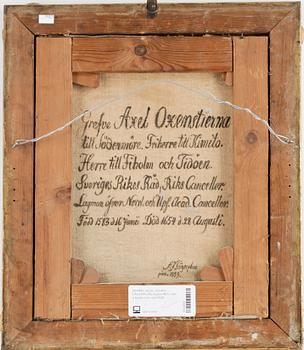 Grefve Axel Oxenstierna
till Södermöre. Friherre till Kimito.
Herre till Fiholm och Tidöen.
Sveriges Rikes Råd, Riks Canceller.
Lagman öfver Norl. och Upl. Acad. Canceller.
Född 1583 d 16 Junii Död 1654 d 28 Augusti.